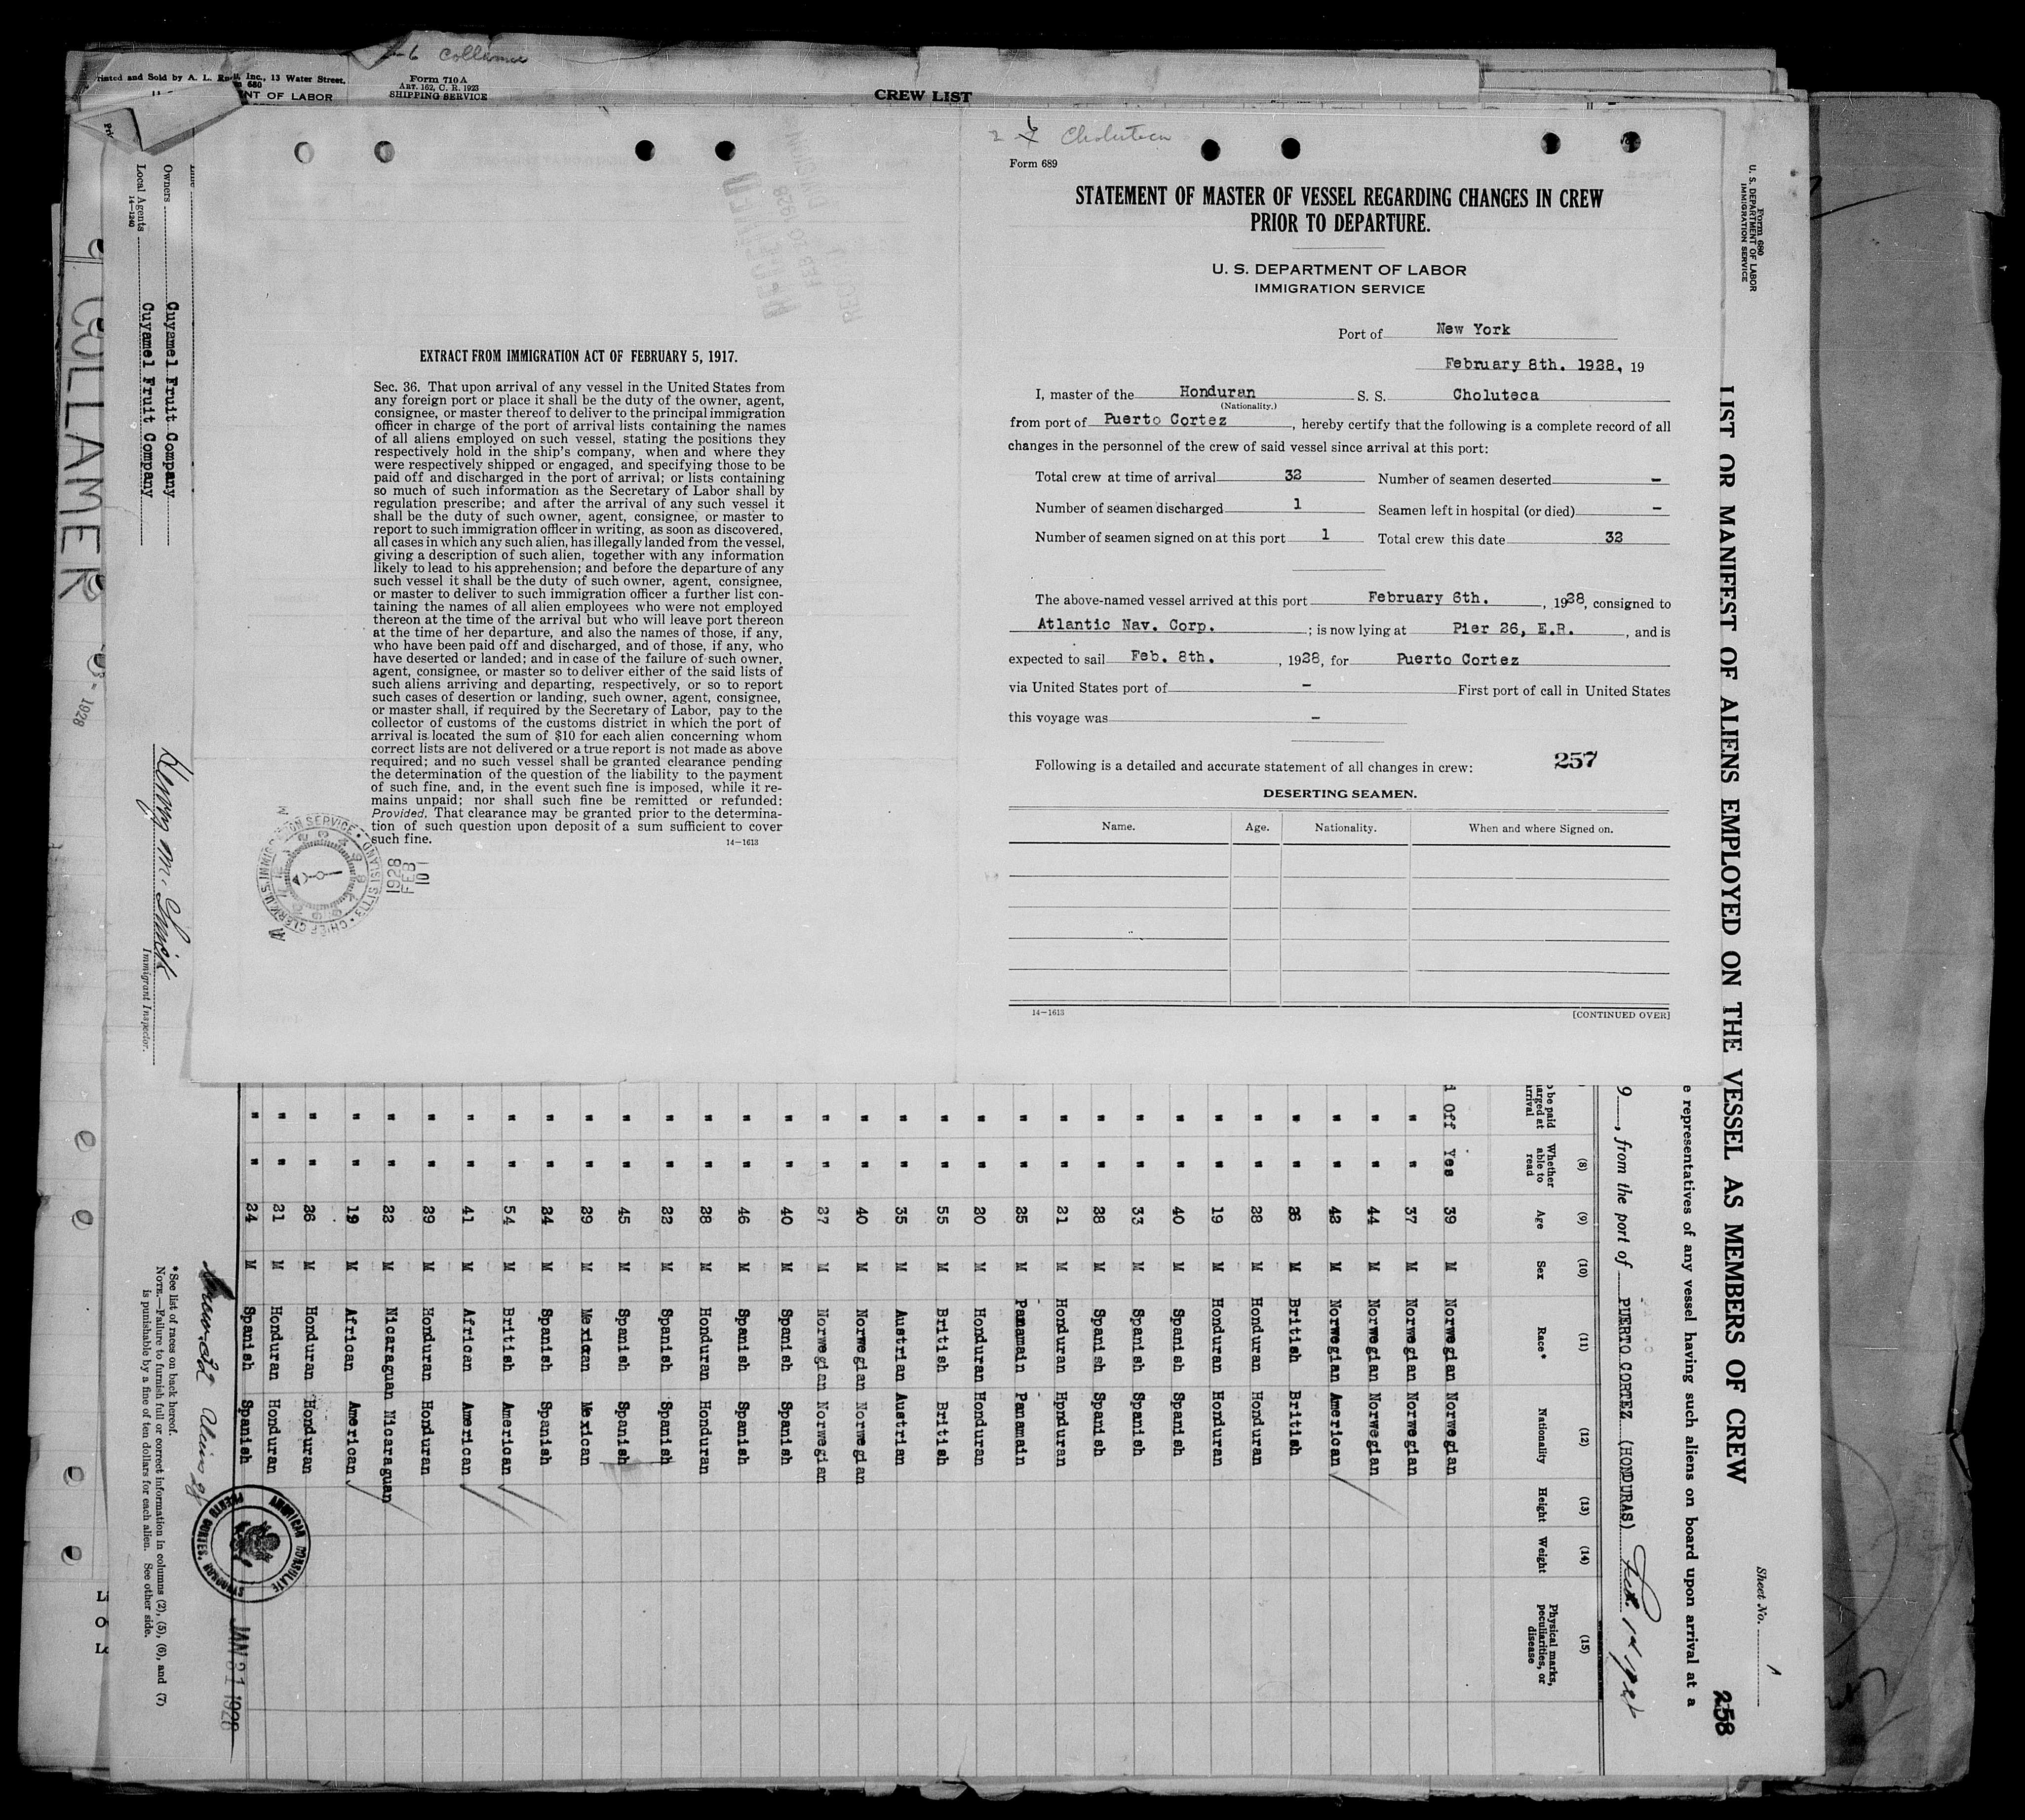 6 Collamer
Printed and Sold by A. L. Russell, Inc., 13 Water Street.
680
NT OF LABOR
Form 710 A
ART. 162, C. R. 1923
SHIPPING SERVICE
CREW LIST
COLLAMER
1928
Owners Cuyamel Fruit Company
Local Agents Cuyamel Fruit Company
14—1240
Immigrant Inspector.
FEB 20 1928
EXTRACT FROM IMMIGRATION ACT OF FEBRUARY 5, 1917.
Sec. 36. That upon arrival of any vessel in the United States from
any foreign port or place it shall be the duty of the owner, agent,
consignee, or master thereof to deliver to the principal immigration
officer in charge of the port of arrival lists containing the names
of all aliens employed on such vessel, stating the positions they
respectively hold in the ship's company, when and where they
were respectively shipped or engaged, and specifying those to be
paid off and discharged in the port of arrival; or lists containing
so much of such information as the Secretary of Labor shall by
regulation prescribe; and after the arrival of any such vessel it
shall be the duty of such owner, agent, consignee, or master to
report to such immigration officer in writing, as soon as discovered,
all cases in which any such alien, has illegally landed from the vessel,
giving a description of such alien, together with any information
likely to lead to his apprehension; and before the departure of any
such vessel it shall be the duty of such owner, agent, consignee,
or master to deliver to such immigration officer a further list con-
taining the names of all alien employees who were not employed
thereon at the time of the arrival but who will leave port thereon
at the time of her departure, and also the names of those, if any,
who have been paid off and discharged, and of those, if any, who
have deserted or landed; and in case of the failure of such owner,
agent, consignee, or master so to deliver either of the said lists of
such aliens arriving and departing, respectively, or so to report
such cases of desertion or landing, such owner, agent, consignee,
or master shall, if required by the Secretary of Labor, pay to the
collector of customs of the customs district in which the port of
arrival is located the sum of $10 for each alien concerning whom
correct lists are not delivered or a true report is not made as above
required; and no such vessel shall be granted clearance pending
the determination of the question of the liability to the payment
of such fine, and, in the event such fine is imposed, while it re-
mains unpaid; nor shall such fine be remitted or refunded:
Provided, That clearance may be granted prior to the determina-
tion of such question upon deposit of a sum sufficient to cover
such fine.
14—1613
CHIEF CLERK U.S. IMMIGRATION SERVICE • ELLIS ISLAND
1928
FEB
101
2 Choluteca
Form 689
STATEMENT OF MASTER OF VESSEL REGARDING CHANGES IN CREW
PRIOR TO DEPARTURE.
U. S. DEPARTMENT OF LABOR
IMMIGRATION SERVICE
Port of New York
February 8th. 1928, 19
I, master of the Honduran S. S. Choluteca
(Nationality.)
from port of Puerto Cortez, hereby certify that the following is a complete record of all
changes in the personnel of the crew of said vessel since arrival at this port:
Total crew at time of arrival 32 Number of seamen deserted -
Number of seamen discharged 1 Seamen left in hospital (or died) -
Number of seamen signed on at this port 1 Total crew this date 32
The above-named vessel arrived at this port February 6th., 1928, consigned to
Atlantic Nav. Corp.; is now lying at Pier 26, E.R., and is
expected to sail Feb. 8th., 1928, for Puerto Cortez
via United States port of - First port of call in United States
this voyage was -
Following is a detailed and accurate statement of all changes in crew: 257
DESERTING SEAMEN.
Name. Age. Nationality. When and where Signed on.
14—1613
[CONTINUED OVER]
Form 680
U. S. DEPARTMENT OF LABOR
IMMIGRATION SERVICE
Sheet No. 1
LIST OR MANIFEST OF ALIENS EMPLOYED ON THE VESSEL AS MEMBERS OF CREW
258
e representatives of any vessel having such aliens on board upon arrival at a
9, from the port of PUERTO CORTEZ (HONDURAS)
(8) (9) (10) (11) (12) (13) (14) (15)
Whether able to read Age Sex Race* Nationality Height Weight Physical marks, peculiarities, or disease
Off Yes 39 M Norwegian Norwegian
" " 37 M Norwegian Norwegian
" " 44 M Norwegian Norwegian
" " 42 M Norwegian American
" " 26 M British British
" " 28 M Honduran Honduran
" " 19 M Honduran Honduran
" " 40 M Spanish Spanish
" " 33 M Spanish Spanish
" " 28 M Spanish Spanish
" " 21 M Honduran Honduran
" " 25 M Panamain Panamain
" " 20 M Honduran Honduran
" " 55 M British British
" " 35 M Austrian Austrian
" " 40 M Norwegian Norwegian
" " 27 M Norwegian Norwegian
" " 40 M Spanish Spanish
" " 46 M Spanish Spanish
" " 28 M Honduran Honduran
" " 22 M Spanish Spanish
" " 45 M Spanish Spanish
" " 29 M Mexican Mexican
" " 24 M Spanish Spanish
" " 54 M British American
" " 41 M African American
" " 29 M Honduran Honduran
" " 22 M Nicaraguan Nicaraguan
" " 19 M African American
" " 26 M Honduran Honduran
" " 21 M Honduran Honduran
" " 24 M Spanish Spanish
AMERICAN CONSULATE
PUERTO CORTES, HONDURAS
JAN 31 1928
* See list of races on back hereof.
NOTE.—Failure to furnish full or correct information in columns (2), (5), (6), and (7)
is punishable by a fine of ten dollars for each alien. See other side.